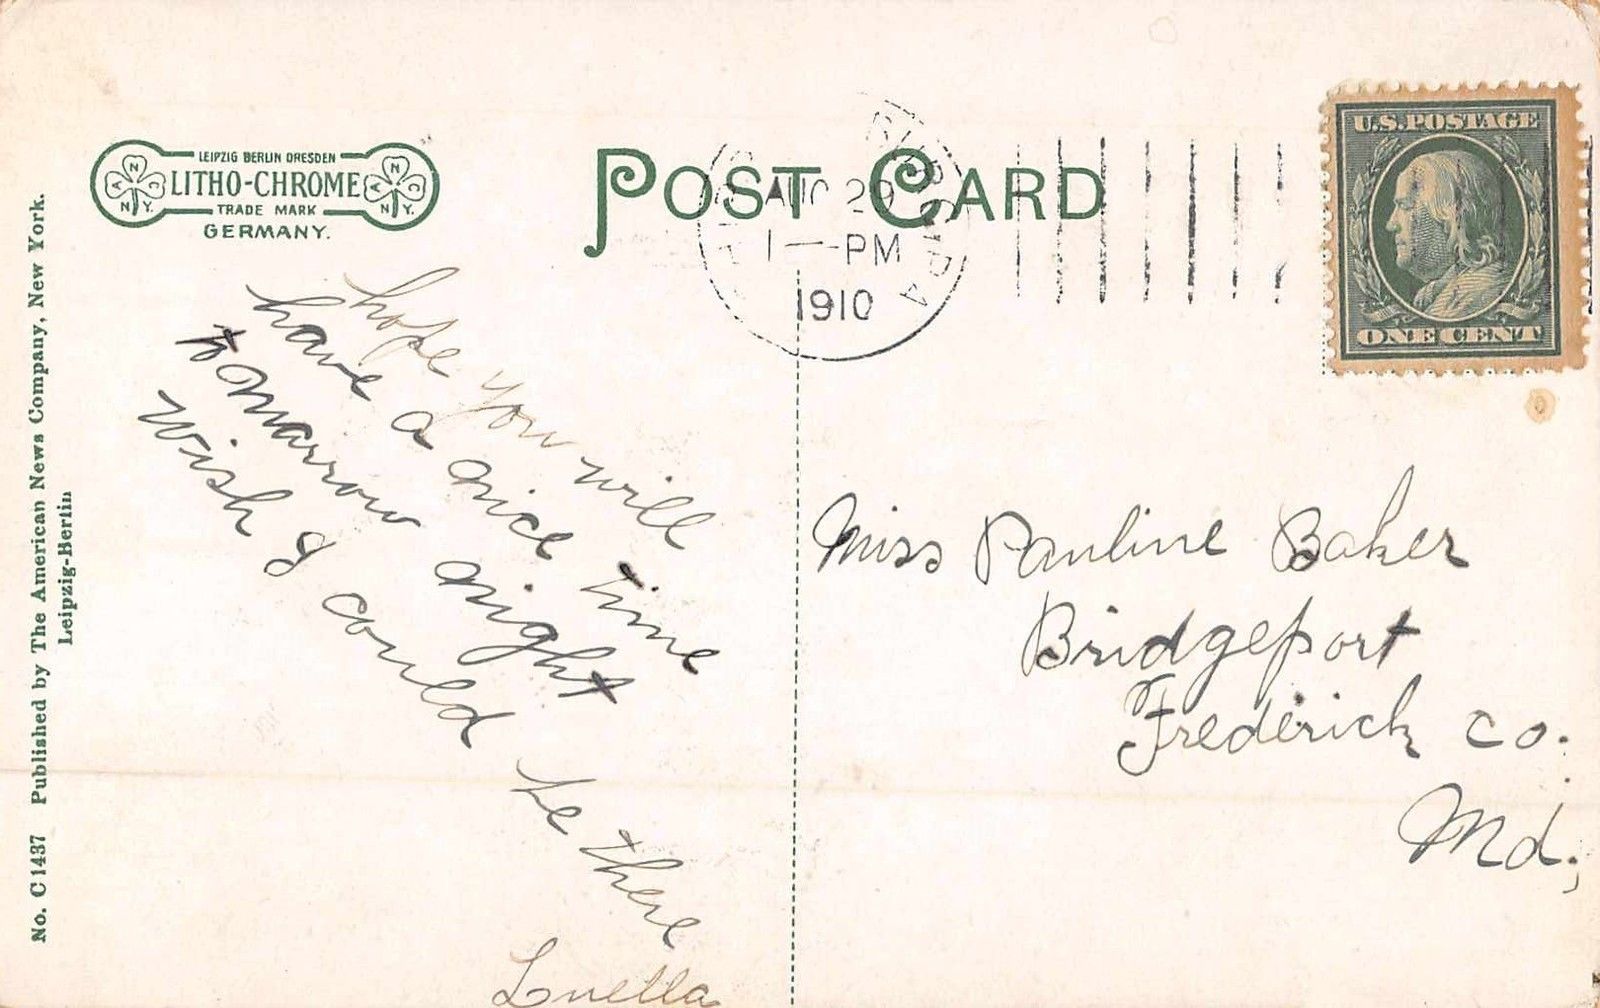 No. C1437 Published by The American News Company, New York.
Leipzig-Berlin
LEIPZIG BERLIN DRESDEN
LITHO-CHROME
TRADE MARK
GERMANY.
A N C
N.Y.
A N C
N.Y.
POST CARD
AUG 29
1 — PM
1910
PA
U.S. POSTAGE
ONE CENT
hope you will
have a nice time
to marrow night
wish I could be there
Luella
Miss Pauline Baker
Bridgeport
Frederick co.
Md.